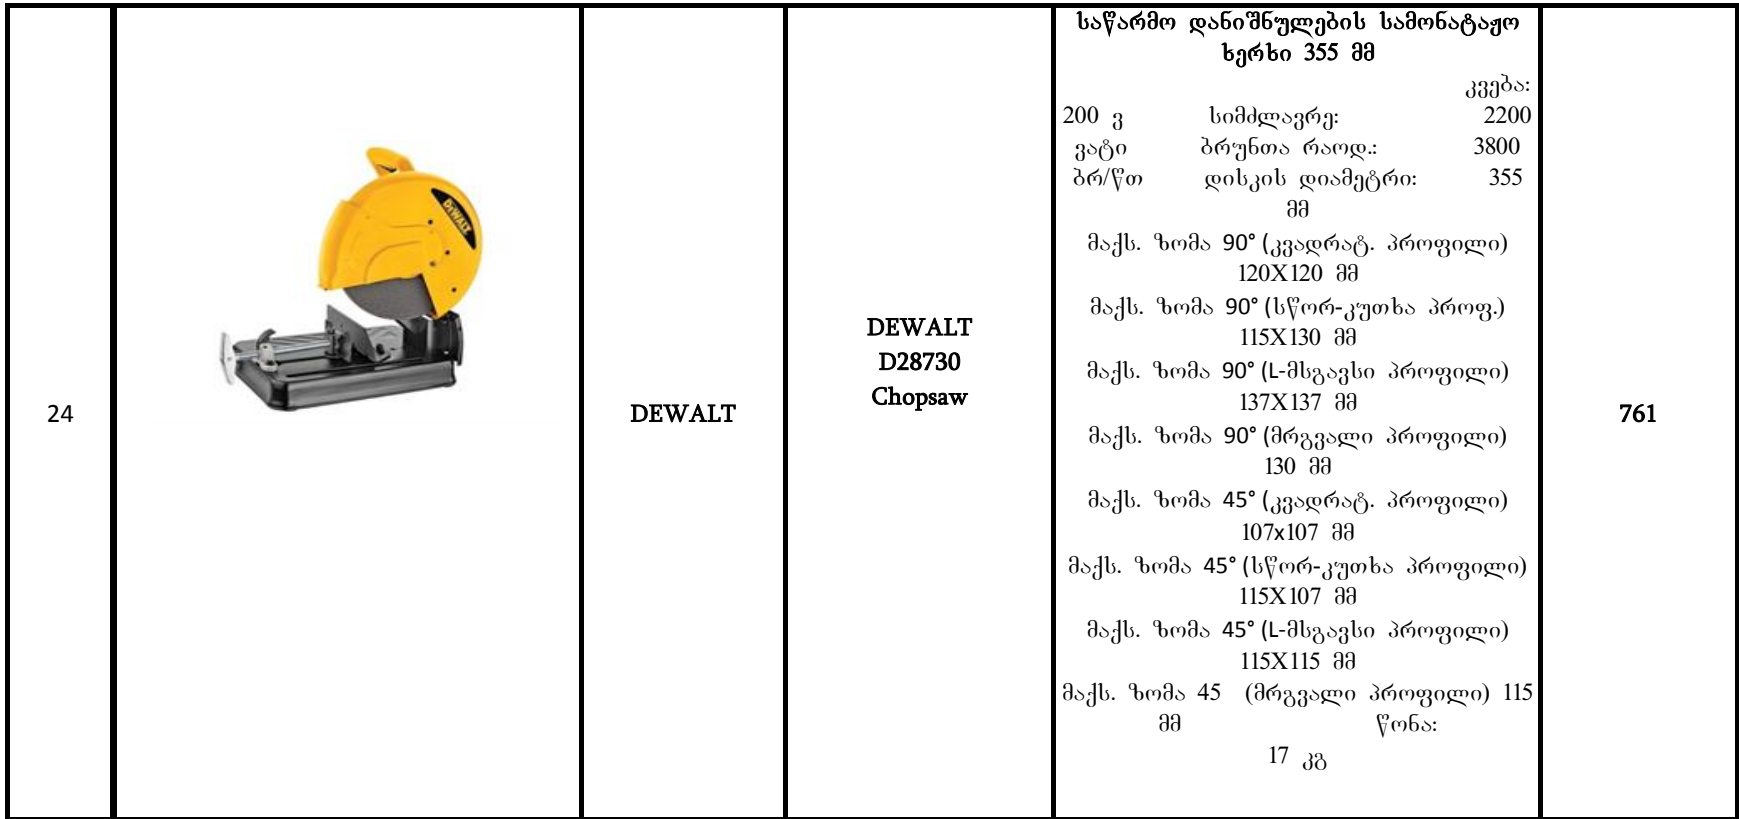 24
DEWALT
DEWALT
DEWALT
D28730
Chopsaw
საწარმო დანიშნულების სამონატაჟო
ხერხი 355 მმ
კვება:
200 ვ სიმძლავრე: 2200
ვატი ბრუნთა რაოდ.: 3800
ბრ/წთ დისკის დიამეტრი: 355
მმ
მაქს. ზომა 90° (კვადრატ. პროფილი)
120X120 მმ
მაქს. ზომა 90° (სწორ-კუთხა პროფ.)
115X130 მმ
მაქს. ზომა 90° (L-მსგავსი პროფილი)
137X137 მმ
მაქს. ზომა 90° (მრგვალი პროფილი)
130 მმ
მაქს. ზომა 45° (კვადრატ. პროფილი)
107x107 მმ
მაქს. ზომა 45° (სწორ-კუთხა პროფილი)
115X107 მმ
მაქს. ზომა 45° (L-მსგავსი პროფილი)
115X115 მმ
მაქს. ზომა 45 (მრგვალი პროფილი) 115
მმ წონა:
17 კგ
761